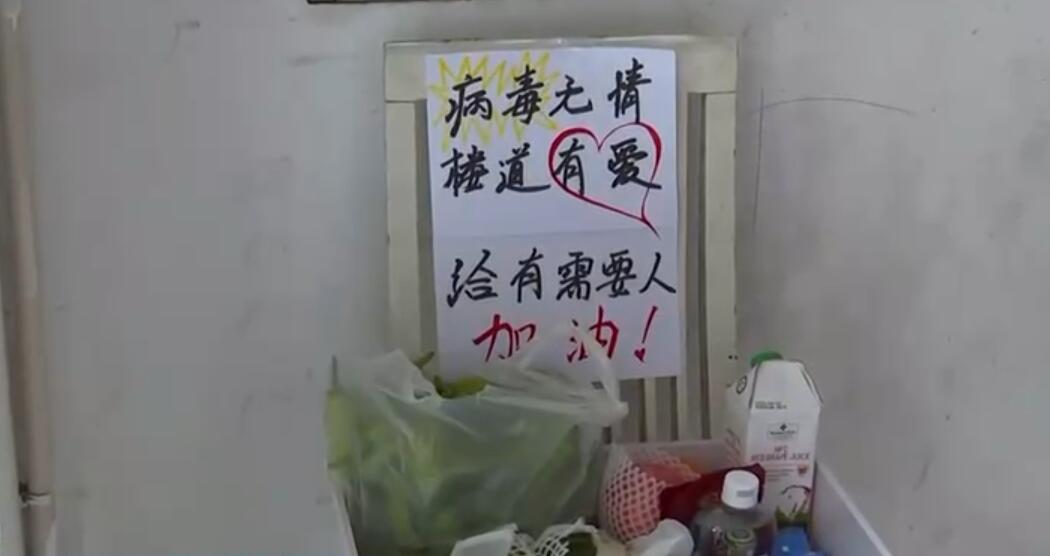 病毒无情
楼道有爱
给有需要人
加油!